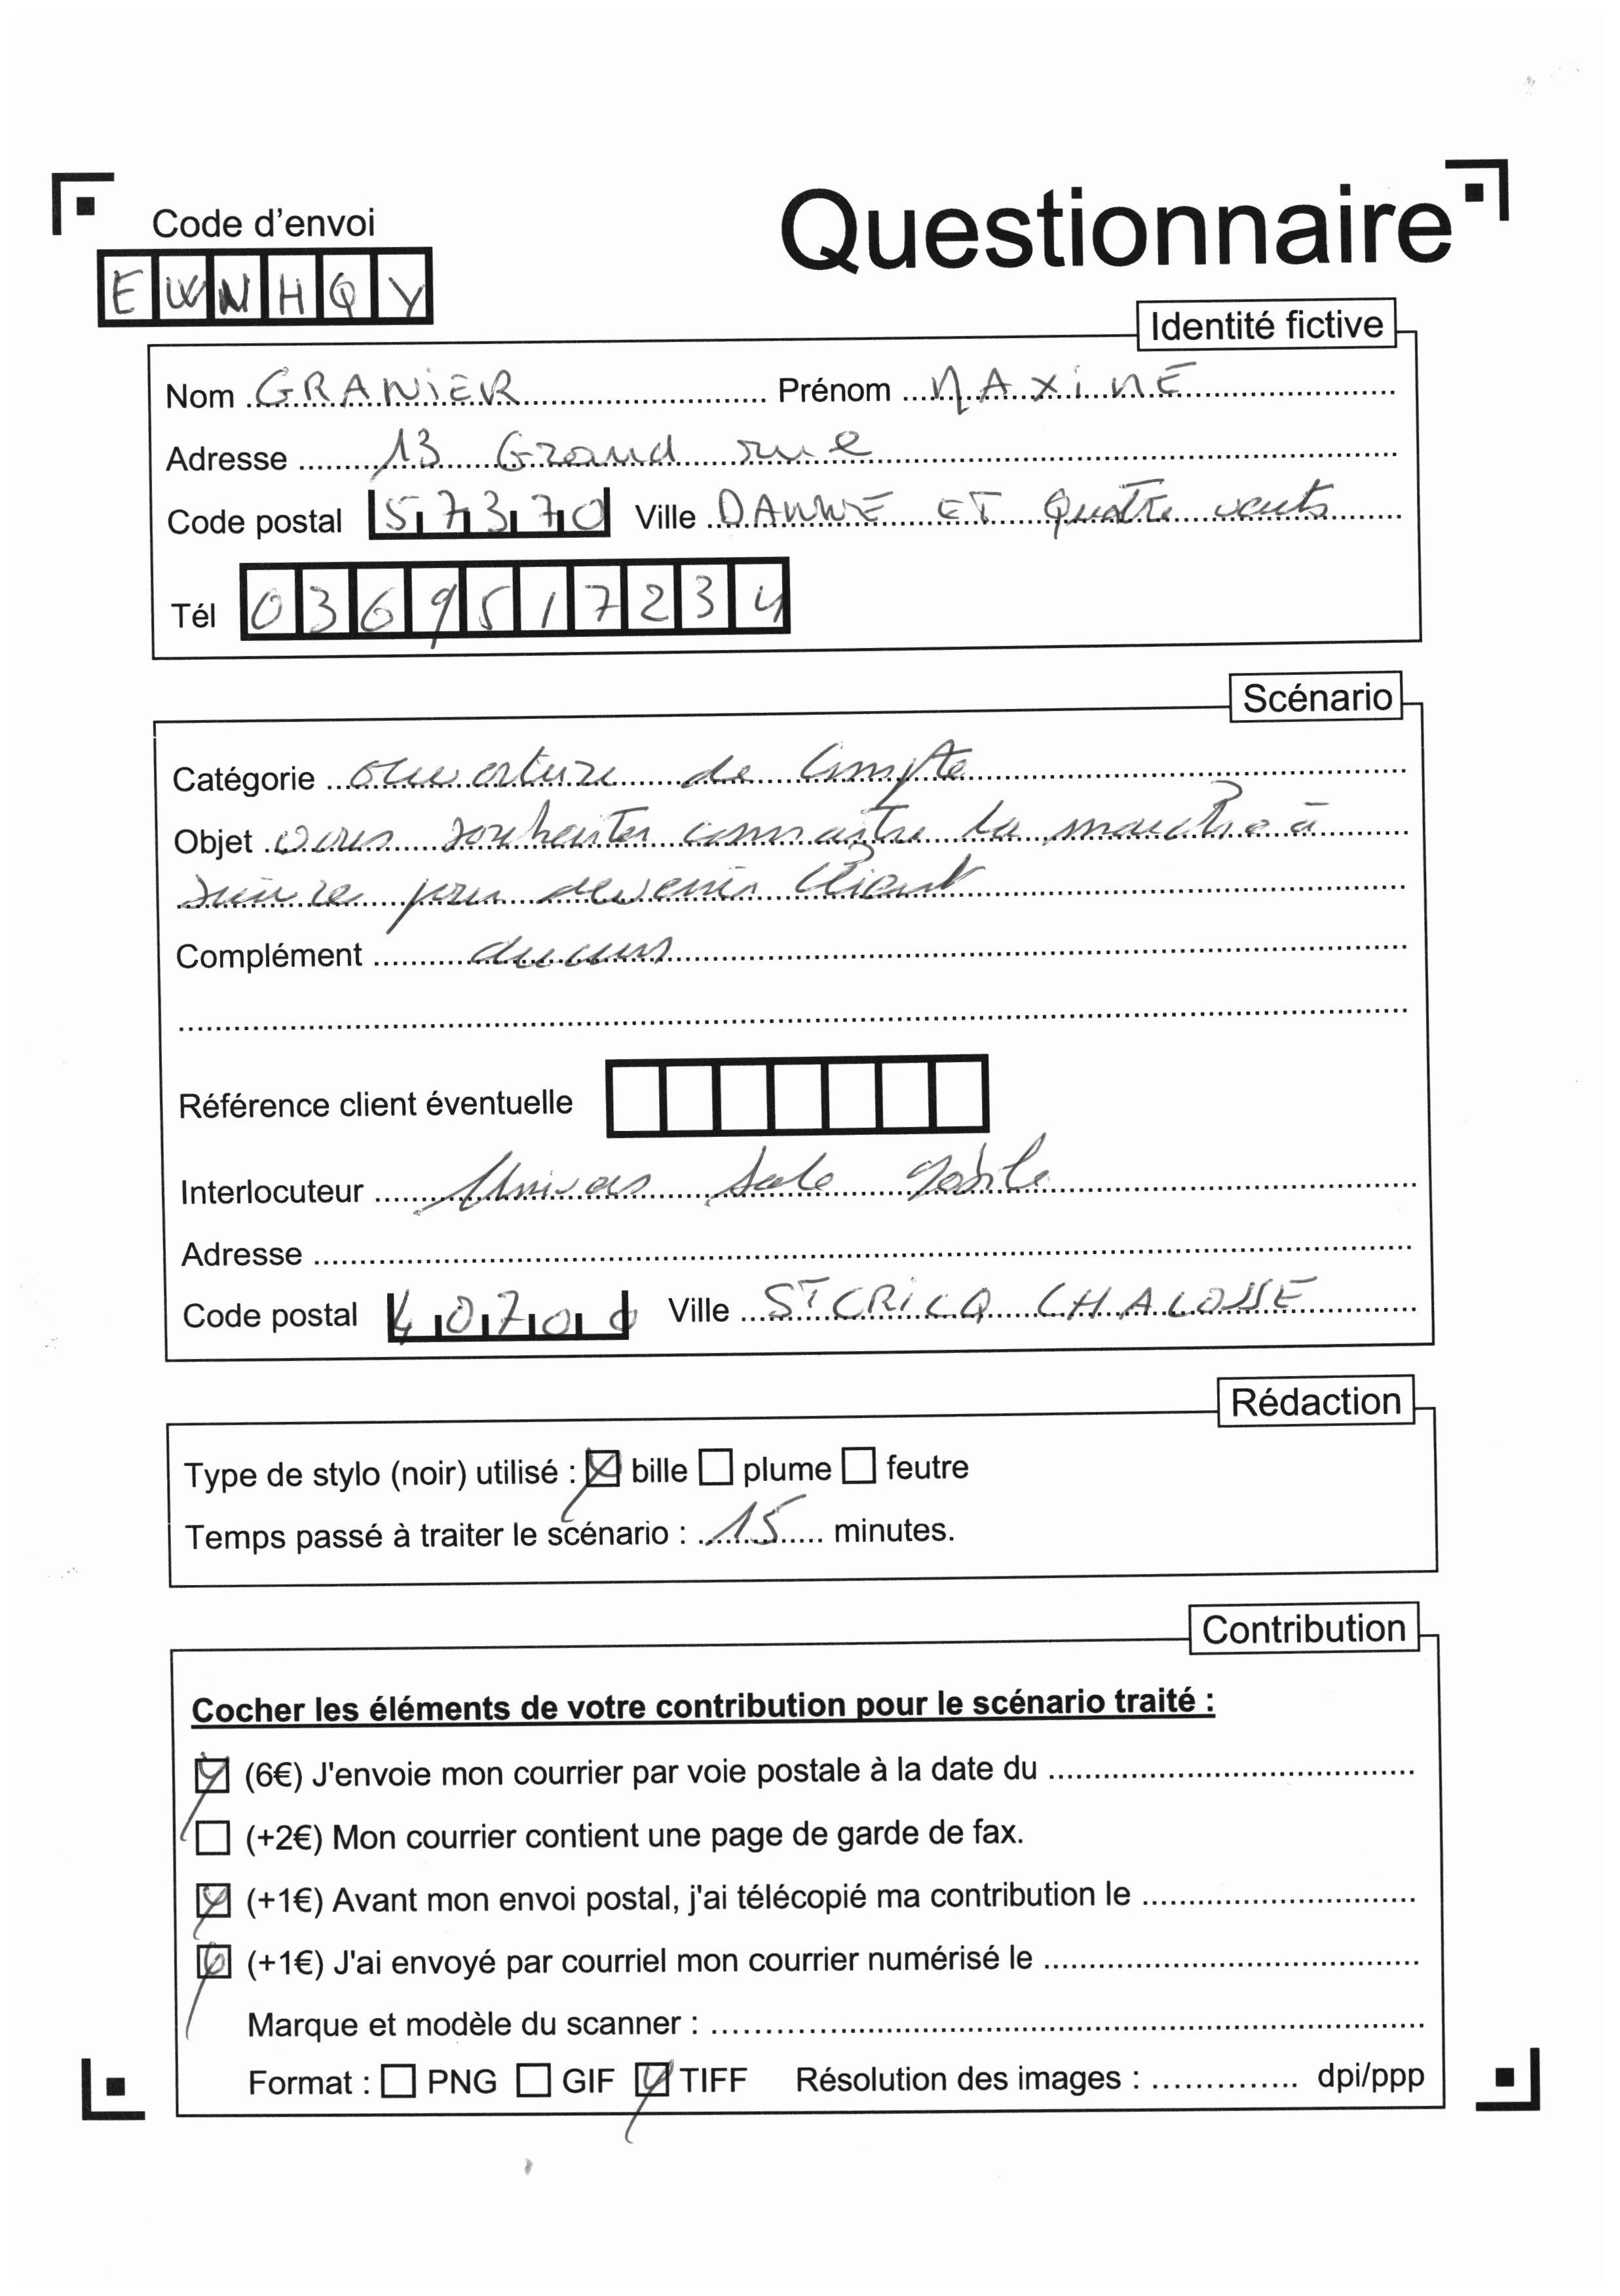 Questionnaire
Code d'envoi
EWNHQY
Identité fictive
Nom GRANIER Prénom MAXIME
Adresse 13 Grand rue
Code postal 57370 Ville DANNE ET Quatre vents
Tél 0369517234
Scénario
Catégorie ouverture de Compte
Objet vous souhaiter connaitre la marche à
suivre pour devenir Client
Complément aucun
Référence client éventuelle
Interlocuteur Univers
Adresse
Code postal 40700 Ville ST CRICQ CHALOSSE
Rédaction
Type de stylo (noir) utilisé : bille plume feutre
Temps passé à traiter le scénario : 15 minutes.
Contribution
Cocher les éléments de votre contribution pour le scénario traité :
(6€) J'envoie mon courrier par voie postale à la date du
(+2€) Mon courrier contient une page de garde de fax.
(+1€) Avant mon envoi postal, j'ai télécopié ma contribution le
(+1€) J'ai envoyé par courriel mon courrier numérisé le
Marque et modèle du scanner :
Format : PNG GIF TIFF Résolution des images : dpi/ppp